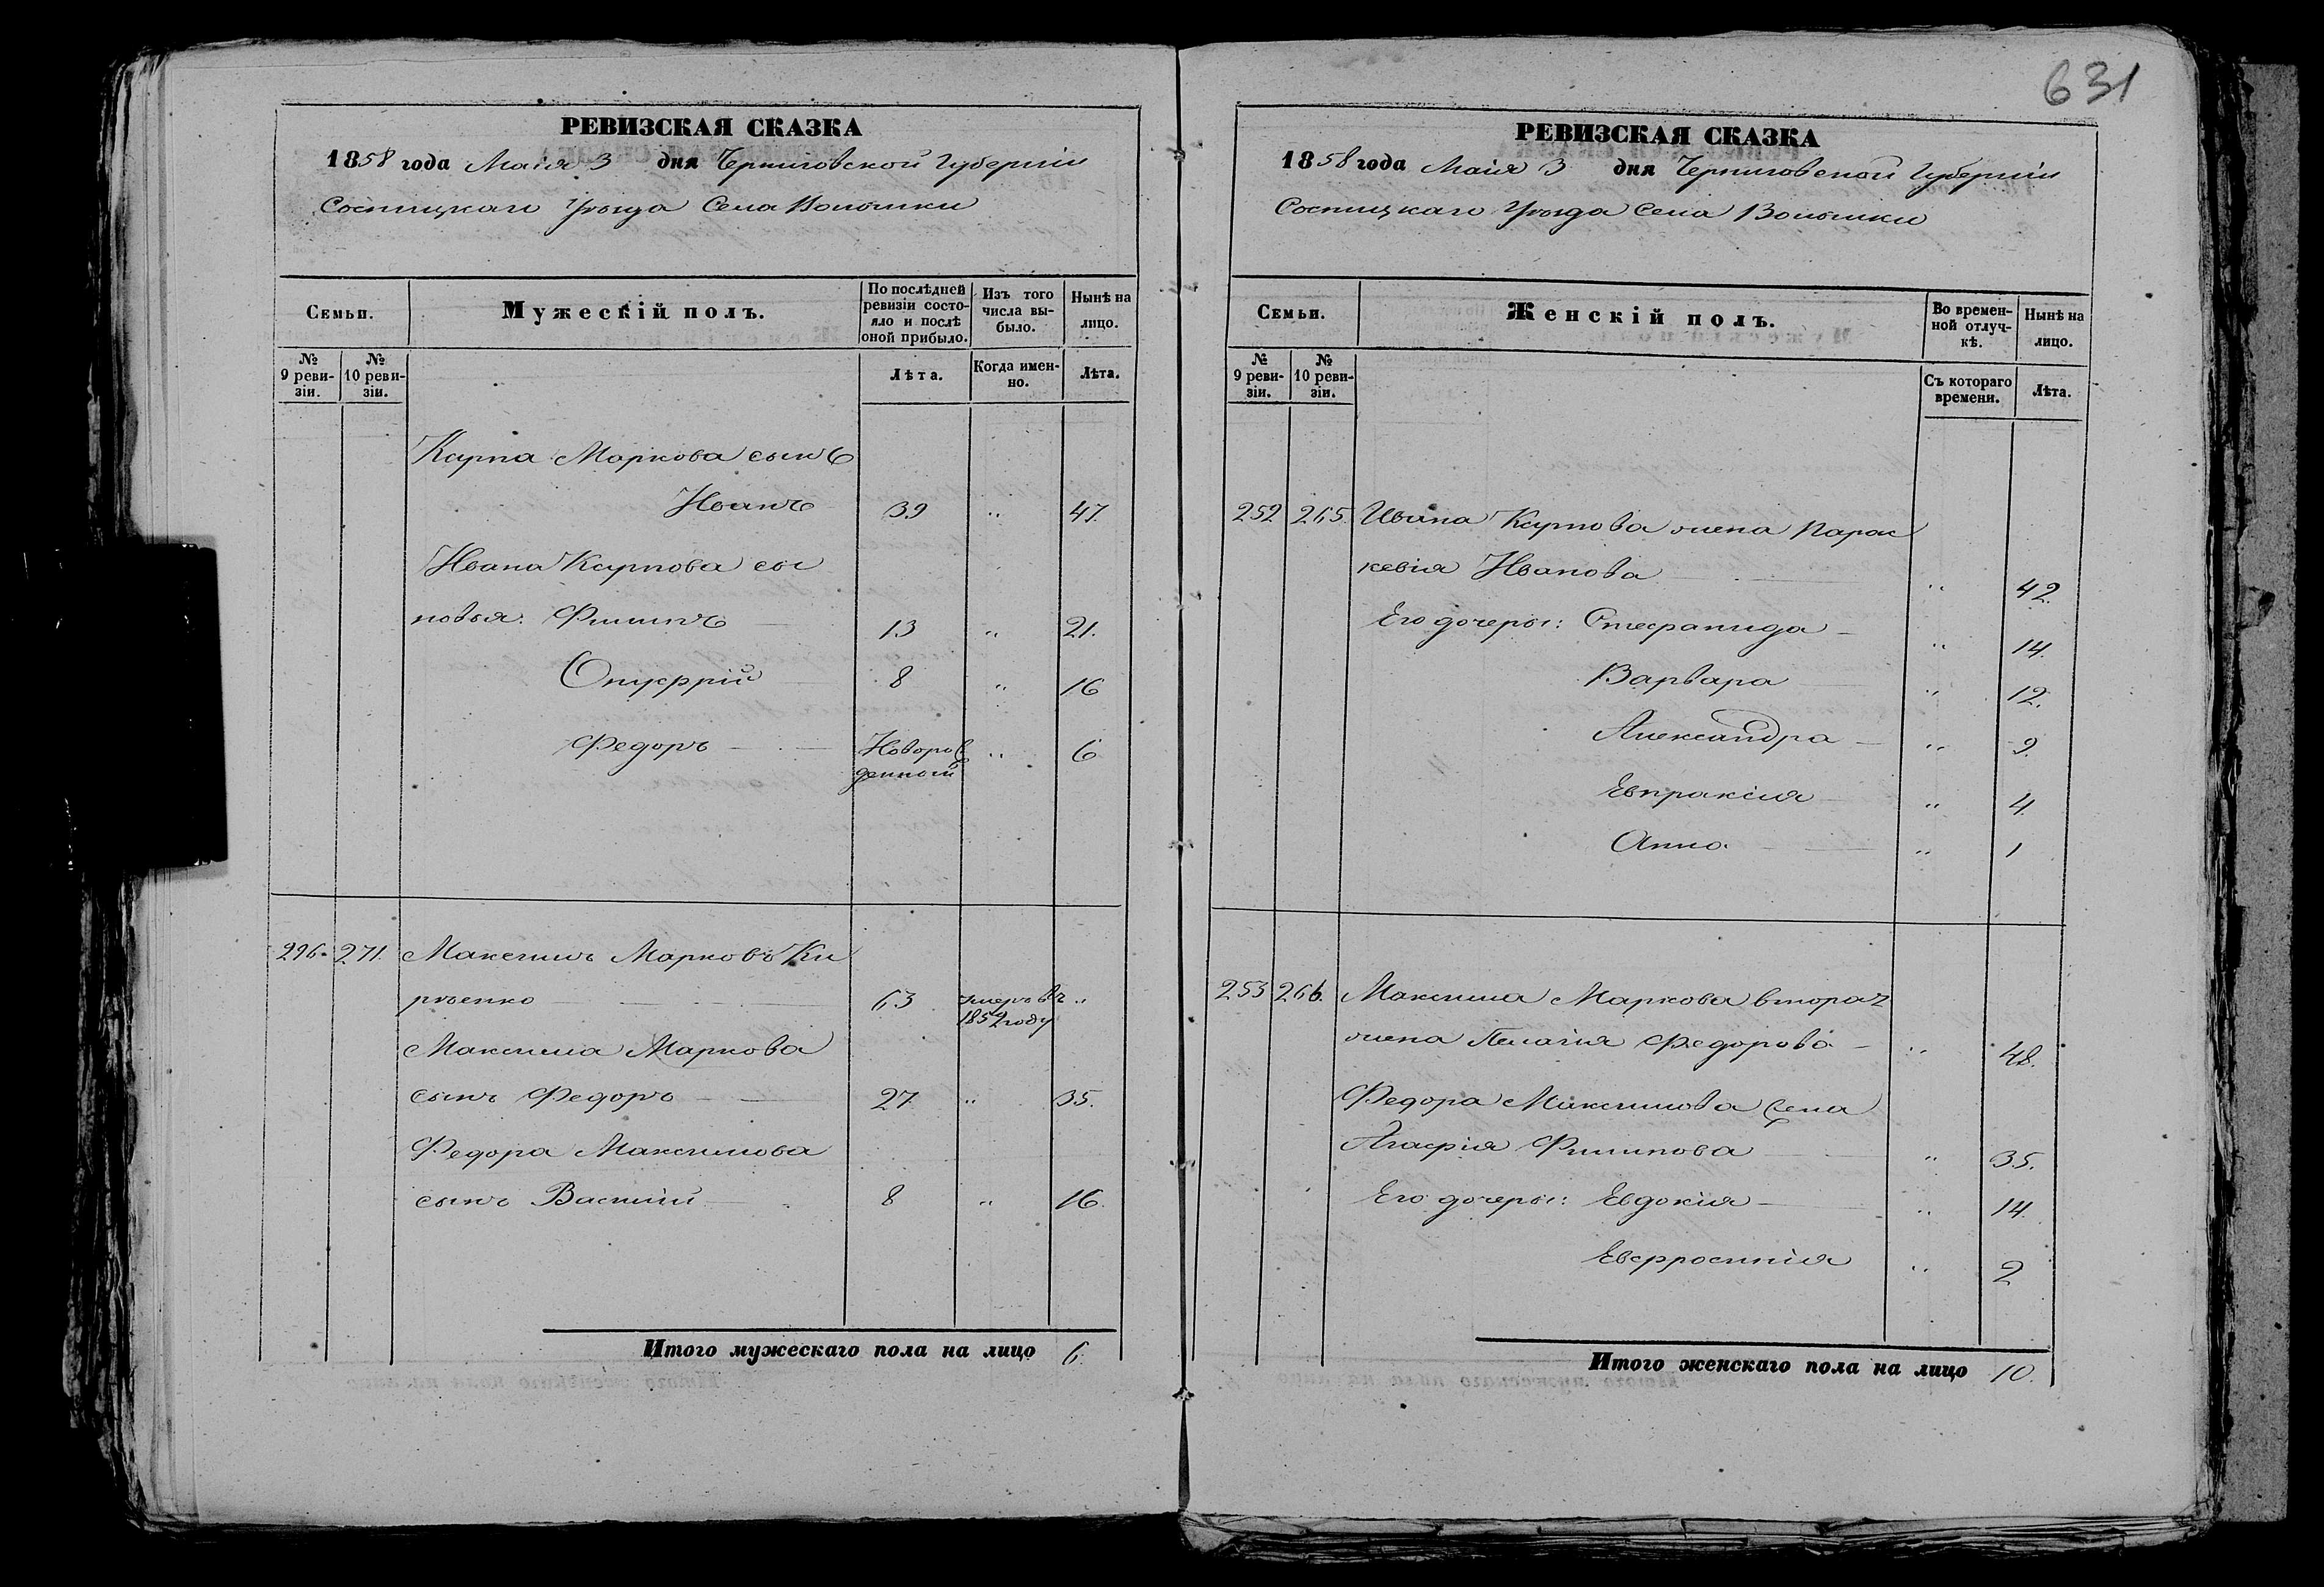 631
РЕВИЗСКАЯ СКАЗКА
1858 года Маія 3 дня Черниговской Губерніи
Сосницкаго Уѣзда Села Волынки
Семьи.
Мужескій полъ.
По послѣдней ревизіи состояло и послѣ оной прибыло.
Изъ того числа выбыло.
Нынѣ на лицо.
№ 9 ревизіи.
№ 10 ревизіи.
Лѣта.
Когда именно.
Лѣта.
Карпа Маркова сынъ
Иванъ 39 " 47.
Ивана Карпова сы
новья: Филипъ 13 " 21.
Онуфрій 8 " 16
Федоръ Новорож " 6
денный
296. 271. Максимъ Марковъ Ки
рѣенко 63 умеръ въ "
1852 году
Максима Маркова
сынъ Федоръ 27 " 35.
Федора Максимова
сынъ Василій 8 " 16.
Итого мужескаго пола на лицо 6.
РЕВИЗСКАЯ СКАЗКА
1858 года Маія 3 дня Черниговской Губерніи
Сосницкаго Уѣзда Села Волынки
Семьи.
Женскій полъ.
Во временной отлучкѣ.
Нынѣ на лицо.
№ 9 ревизіи.
№ 10 ревизіи.
Съ котораго времени.
Лѣта.
252 265. Ивана Карпова жена Парас
кевія Иванова " 42.
Его дочеры: Стефанида " 14.
Варвара " 12.
Александра " 9.
Евпраксія " 4.
Анна " 1
253 266. Максима Маркова вторая
жена Пелагія Федорова " 48.
Федора Максимова жена
Агафія Филипова " 35.
Его дочеры: Евдокія " 14.
Евфросинія " 2
Итого женскаго пола на лицо 10.